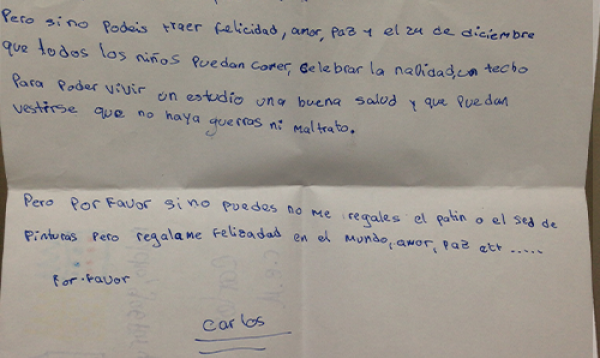 Pero si no podeis traer felicidad, amor, paz y el 24 de diciembre
que todos los niños puedan comer, celebrar la navidad, un techo
para poder vivir un estudio una buena salud y que puedan
vestirse que no haya guerras ni maltrato.
Pero por favor si no puedes no me regales el patin o el sed de
pinturas pero regalame felizadad en el mundo, amor, paz etr .....
Por.favor
carlos